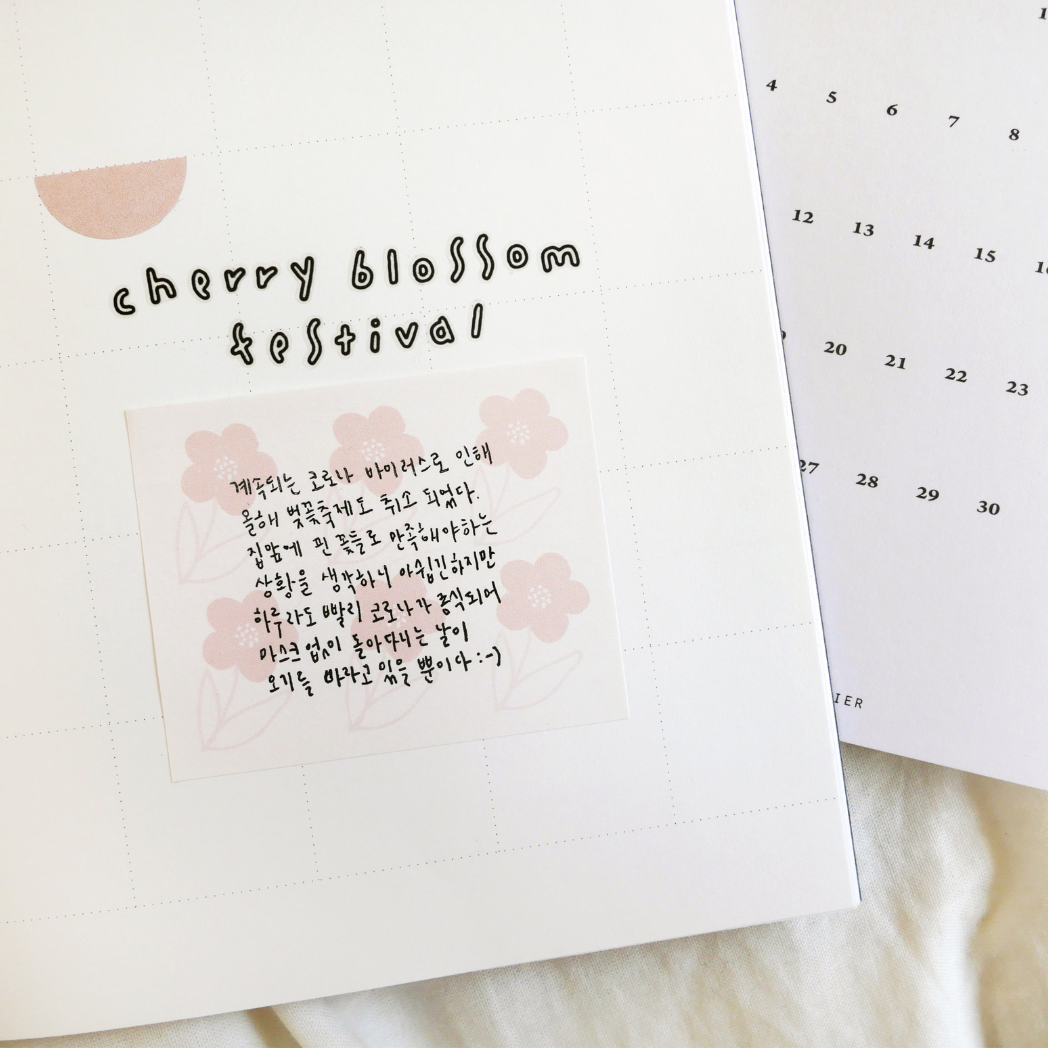 cherry blossom
festival
계속되는 코로나 바이러스로 인해
올해 벚꽃축제도 취소 되었다.
집앞에 핀 꽃들로 만족해야하는
상황을 생각하니 아쉽긴하지만
하루라도 빨리 코로나가 종식되어
마스크 없이 돌아다니는 날이
오기를 바라고 있을 뿐이다 :-)
1
4 5 6 7 8
12 13 14 15
20 21 22 23
27 28 29 30
IER